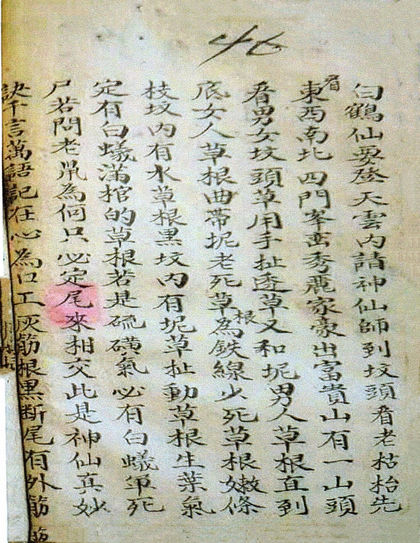 46
白鶴仙登天雲内請神仙師到坟頭看老枯先
看東西南北四門峯峦秀麗家豪出富貴山有一山頭
看男女坟頭草用手扯透草又和坭男人草根直到
底女人草根曲帶坭老死草根為鉄線少死草根嫩條
枝坟内有水草根黑坟内有坭草扯動草根生葉氣
定有白蟻滿棺的草根若是硫磺氣必有白蟻死
尸若問老鼠為何只必定尾來相交此是神仙真妙
訣千言萬語記在心為口工灰筋根黑断尾有外筋